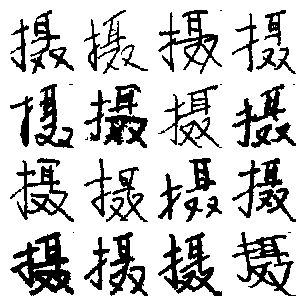 摄摄摄摄
摄摄摄摄
摄摄摄摄
摄摄摄摄